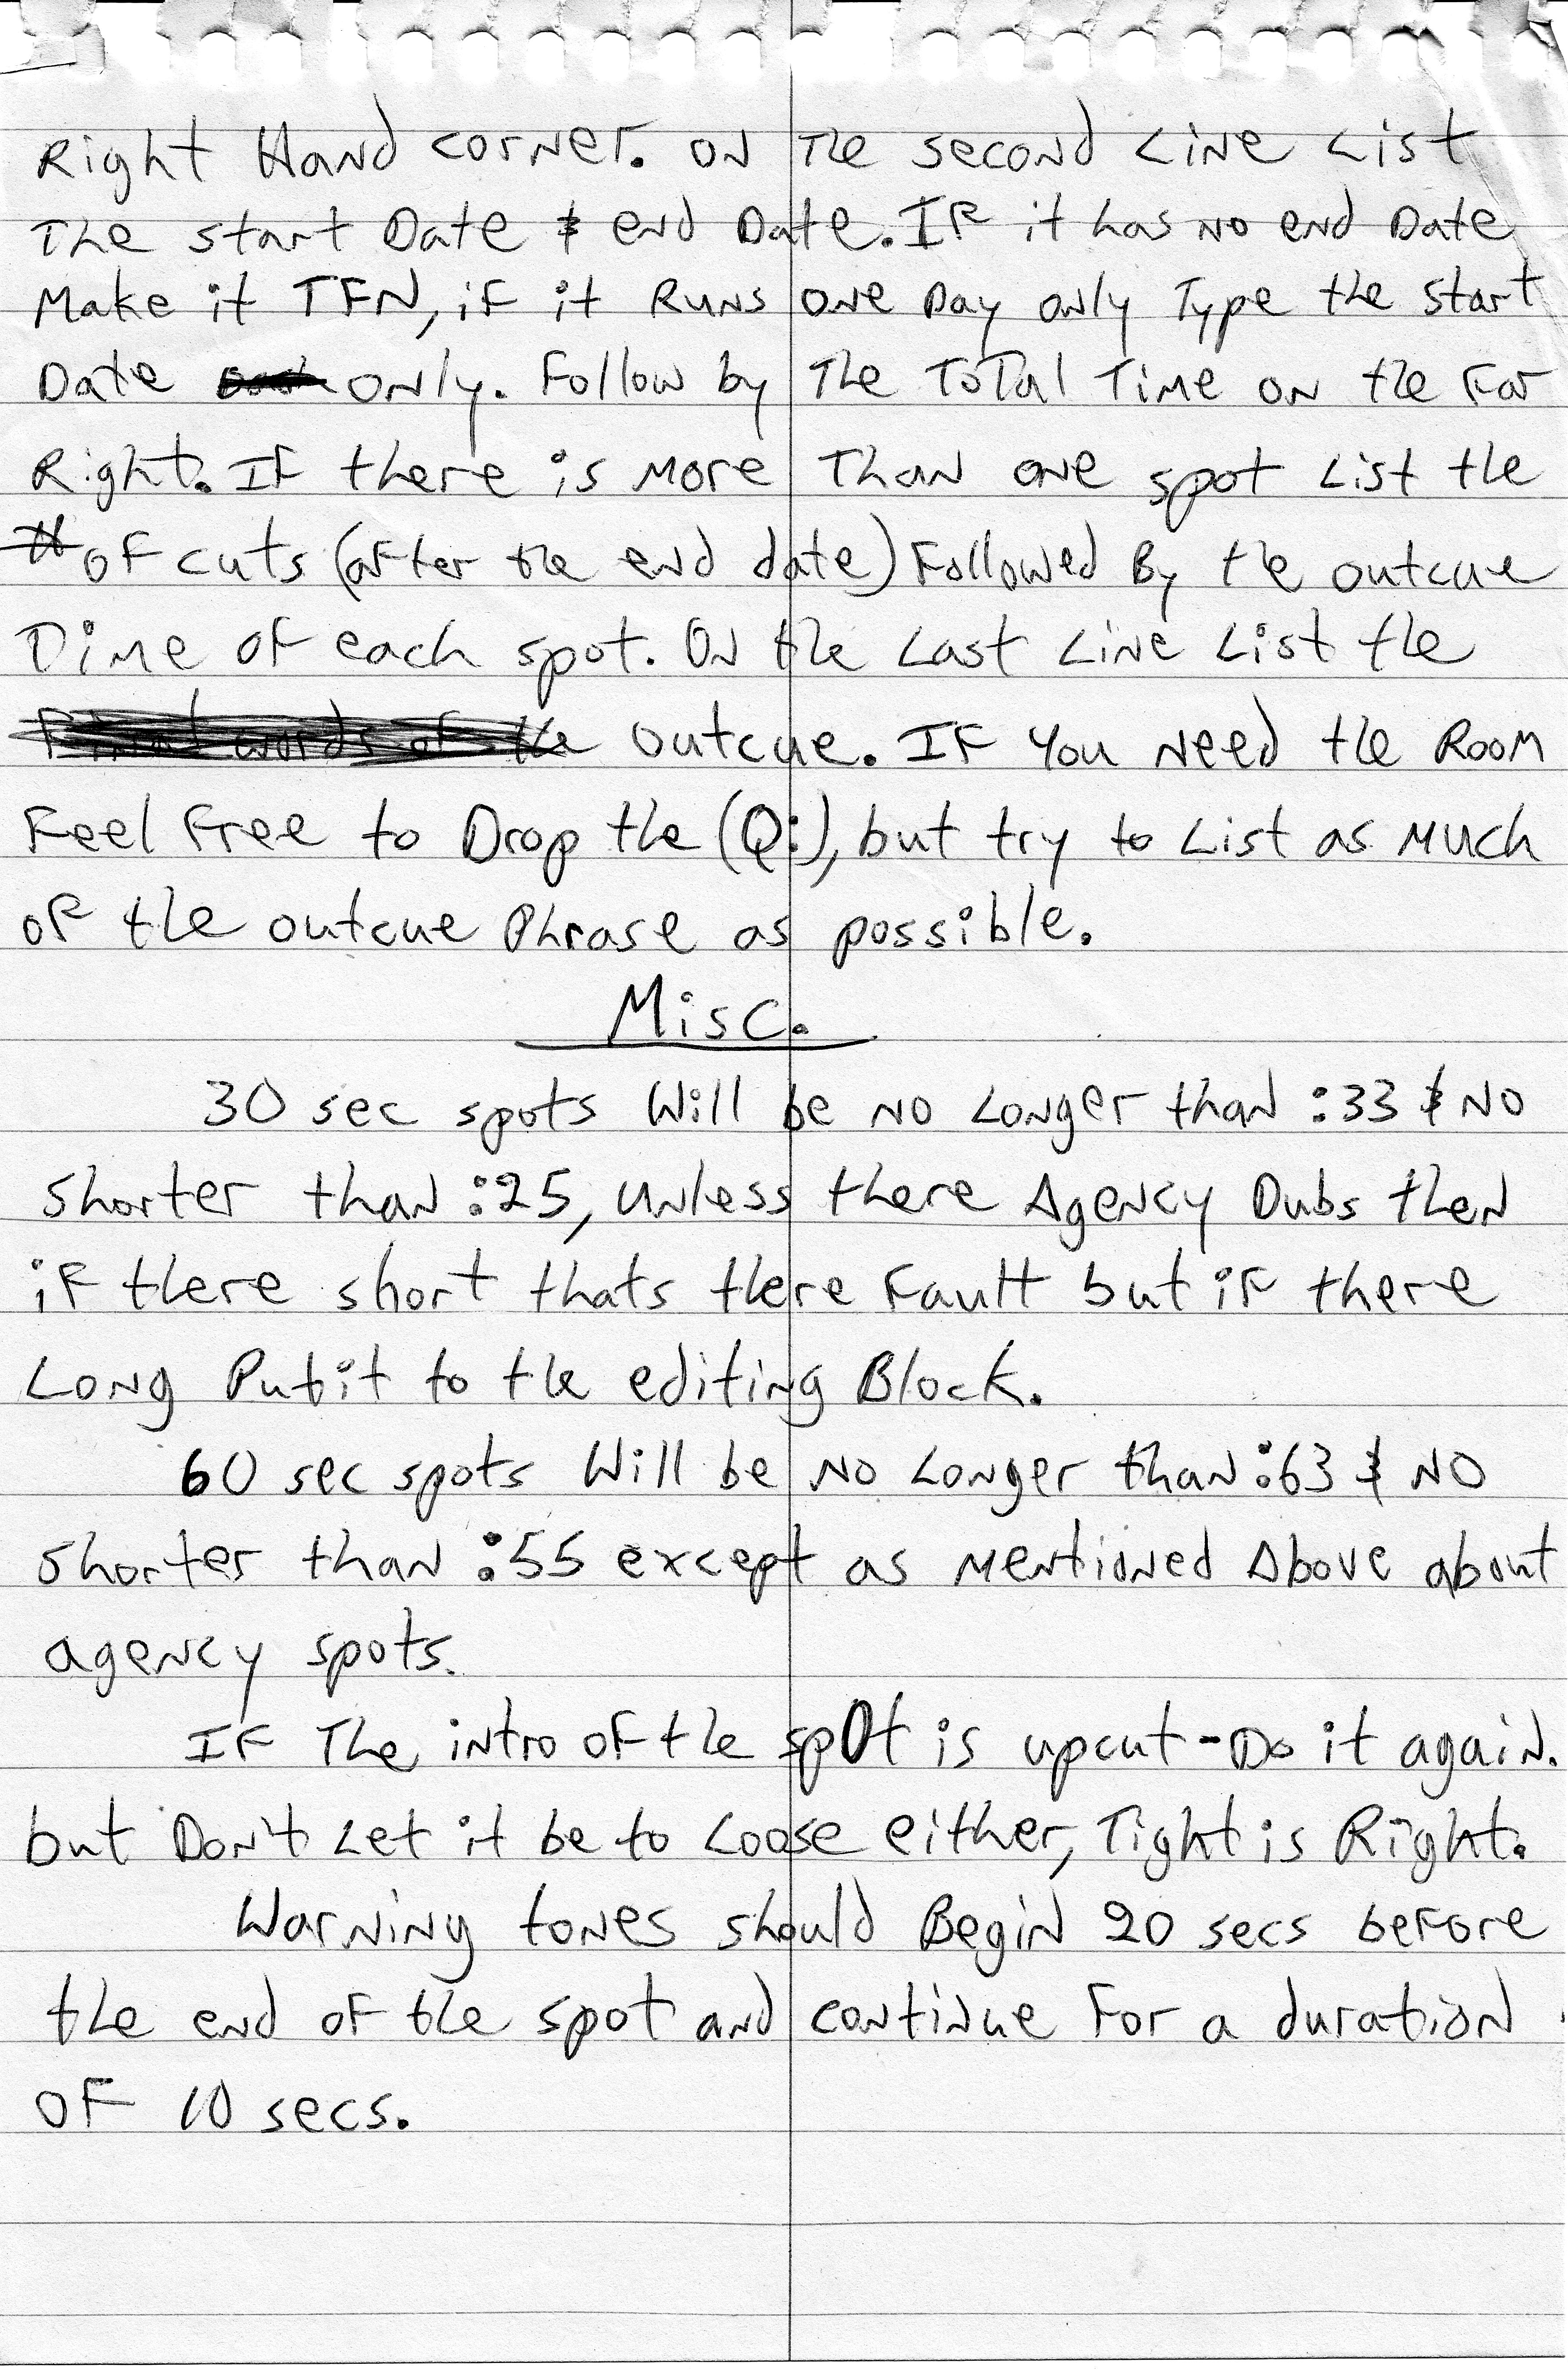 Right Hand corner. on The second Line List
The start Date & end Date. IF it has no end Date
Make it TFN, if it Runs one Day only Type the start
Date only. Follow by The ToTal Time on the Far
Right. IF there is more Than one spot List the
# of cuts (after the end date) Followed By the outcue
Time of each spot. On the Last Line List the
Final words of the outcue. IF You Need the Room
Feel Free to Drop the (Q:), but try to List as Much
of the outcue Phrase as possible.
Misc.
30 sec spots Will be no Longer than :33 & No
shorter than :25, unless there Agency Dubs then
if there short thats there Fault but if there
Long Put it to the editing Block.
60 sec spots Will be No Longer than :63 & NO
shorter than :55 except as mentioned Above about
agency spots.
IF The intro of the spot is upcut - Do it again.
but Don't Let it be to Loose either, Tight is Right.
Warning tones should Begin 20 secs before
the end of the spot and continue For a duration
of 10 secs.